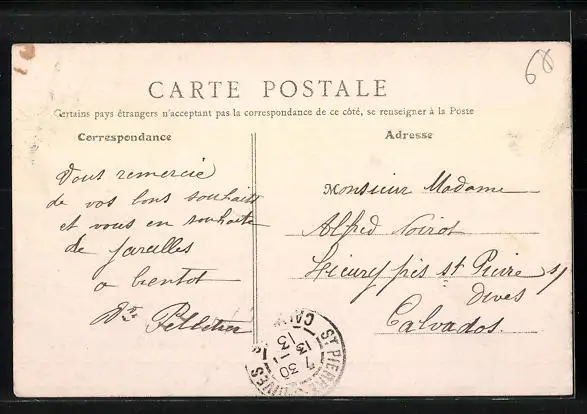 68
CARTE POSTALE
Certains pays étrangers n'acceptant pas la correspondance de ce côté, se renseigner à la Poste
Correspondance
Adresse
Vous remercie
de vos bons souhaits
et vous en souhaite
de pareilles
a bentot
Pelletier
Monsieur Madame
Alfred Noirot
Hieury près st Pierre s/
Dives
Calvados.
ST PIERRE DIVES
7 30
13
13
CALV